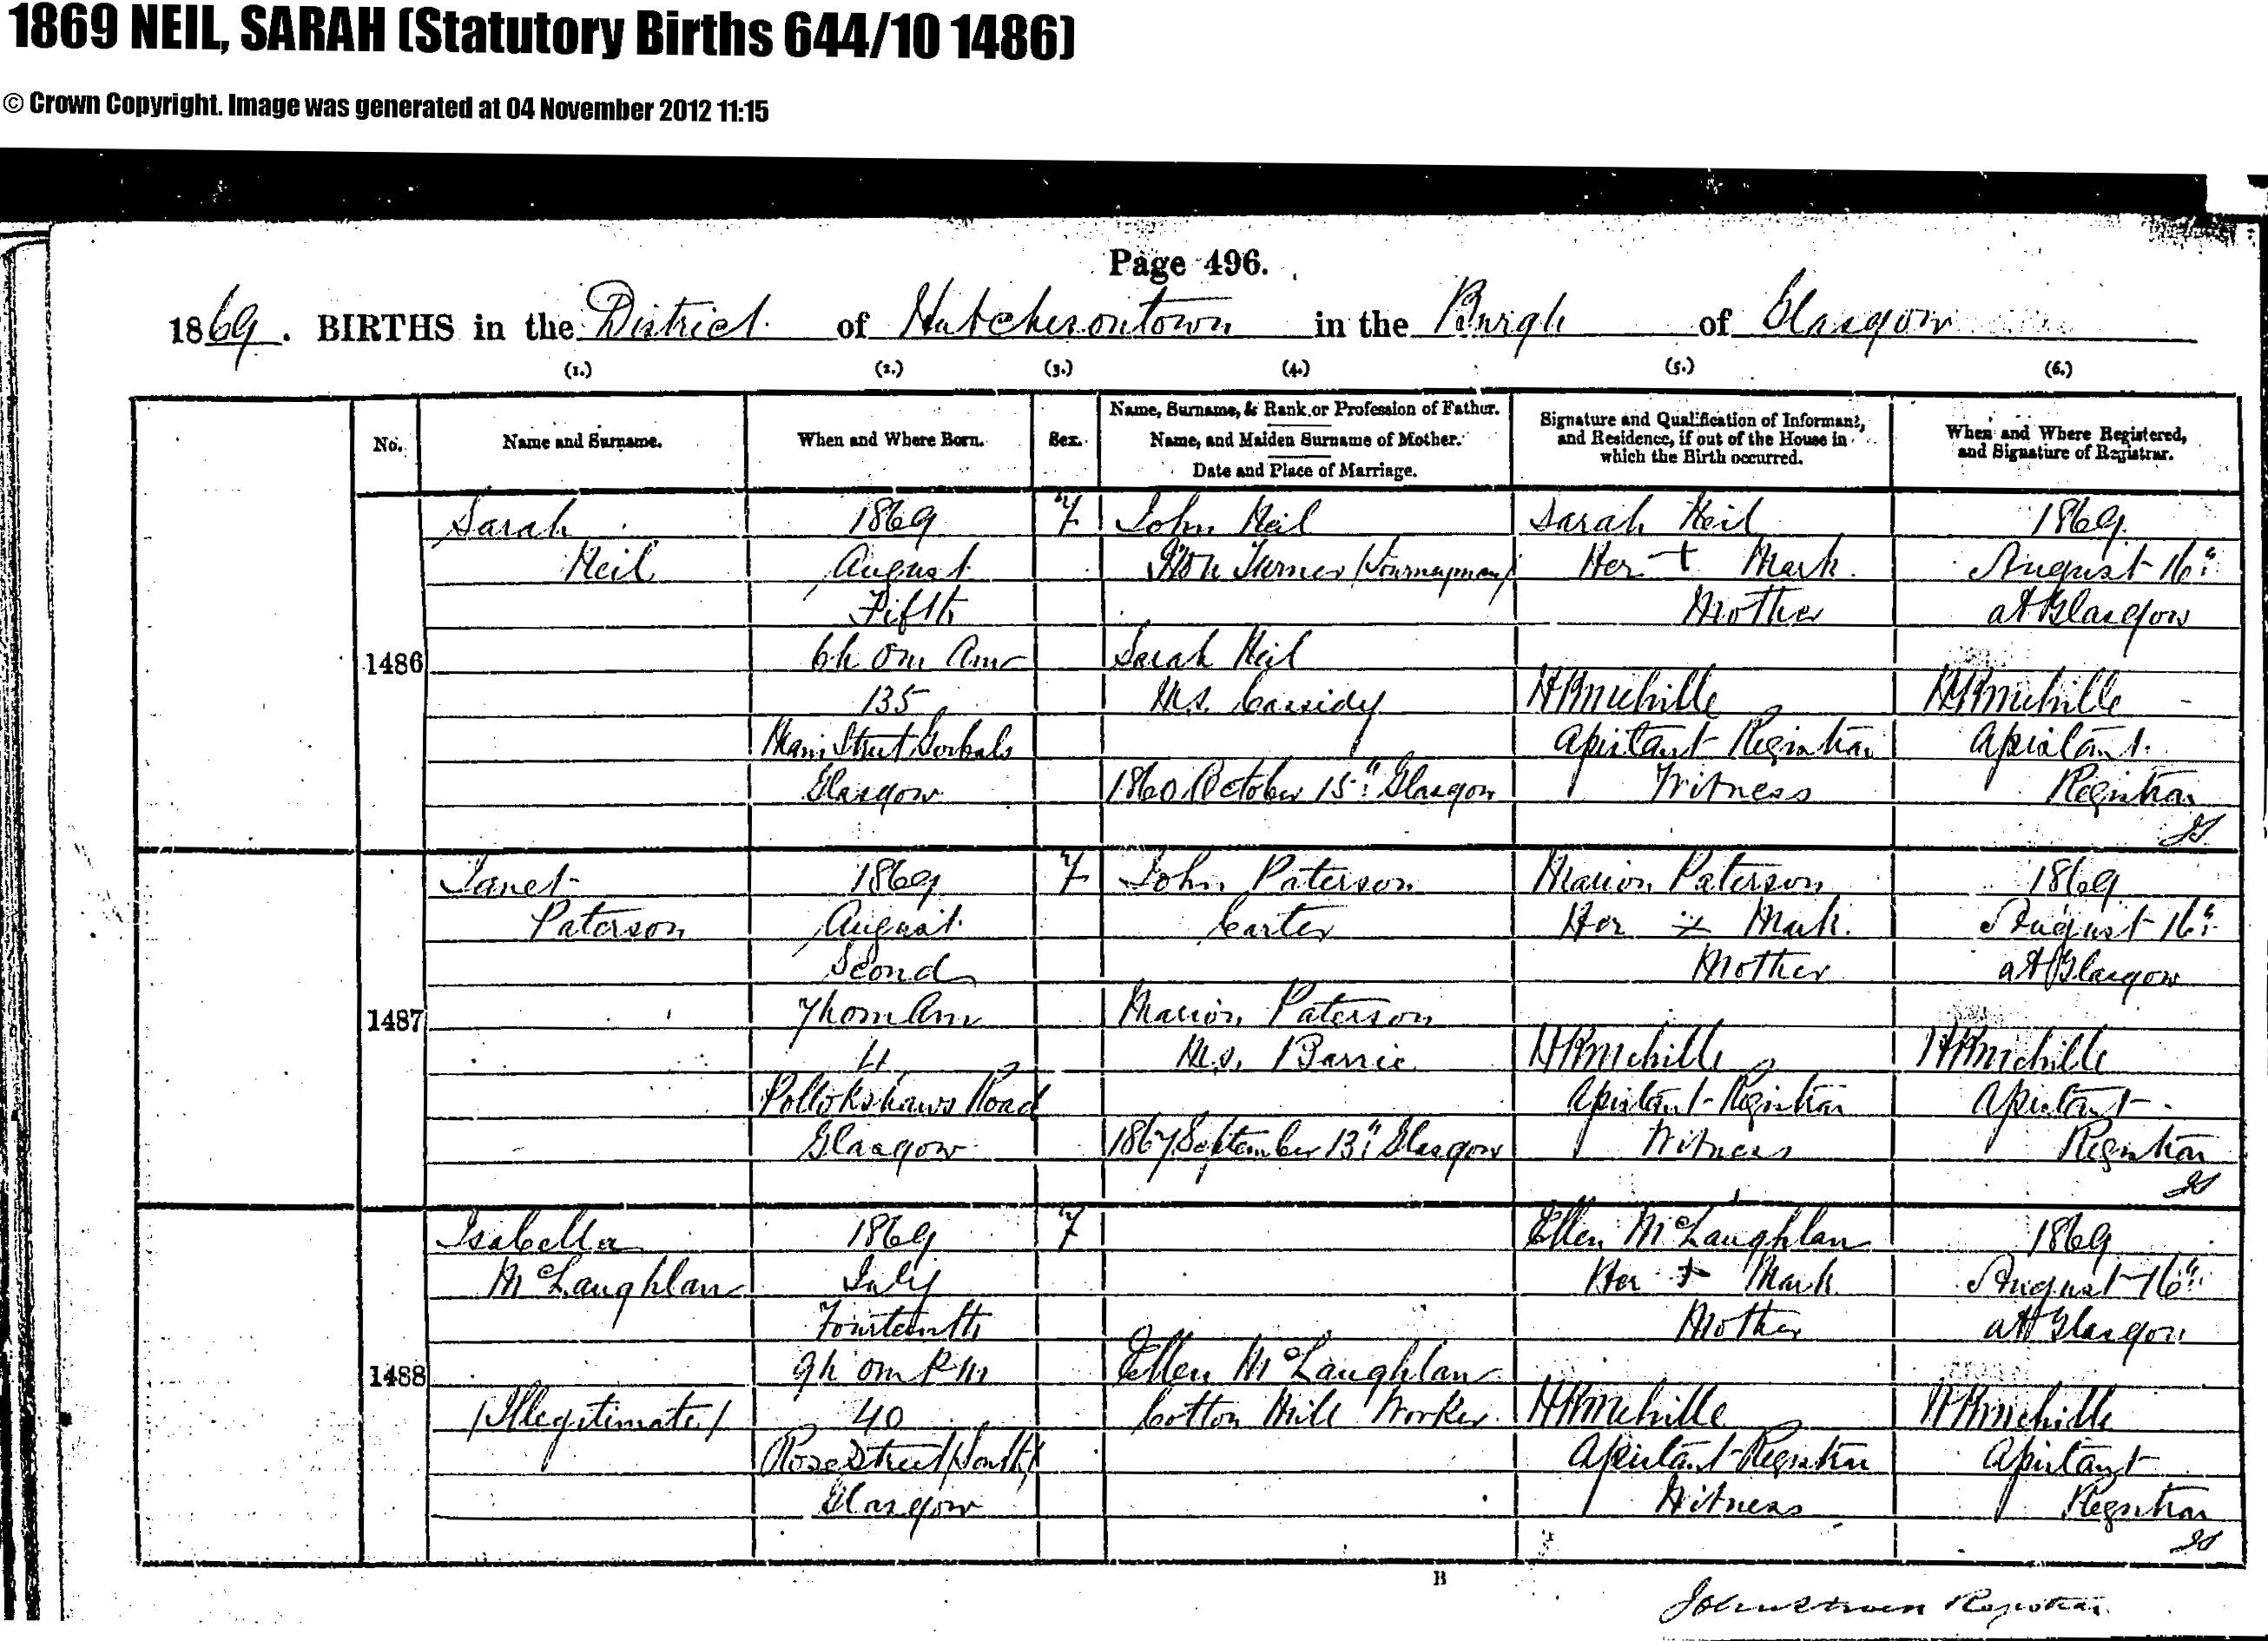 1869 NEIL, SARAH (Statutory Births 644/10 1486)
© Crown Copyright. Image was generated at 04 November 2012 11:15
Page 496.
1869. BIRTHS in the District of Hutchesontown in the Burgh of Glasgow
(1.) (2.) (3.) (4.) (5.) (6.)
No.
Name and Surname.
When and Where Born.
Sex.
Name, Surname, & Rank or Profession of Father.
Name, and Maiden Surname of Mother.
Date and Place of Marriage.
Signature and Qualification of Informant,
and Residence, if out of the House in
which the Birth occurred.
When and Where Registered,
and Signature of Registrar.
1486
Sarah
Neil
1869
August
Fifth
6h 0m Am
135
Main Street Gorbals
Glasgow
F
John Neil
Iron Turner (Journeyman)
Sarah Neil
M.S. Cassidy
1860 October 15" Glasgow
Sarah Neil
Her + Mark
Mother
Assistant Registrar
Witness
1869
August 16"
at Glasgow
Assistant
Registrar
1487
Janet
Paterson
1869
August
Second
7h 0m Am
4
Pollokshaws Road
Glasgow
F
John Paterson
Carter
Marion Paterson
M.S. Barrie
1867 September 13" Glasgow
Marion Paterson
Her x Mark
Mother
Assistant Registrar
Witness
1869
August 16"
at Glasgow
Assistant
Registrar
1488
Isabella
McLaughlan
(Illegitimate)
1869
July
Fourteenth
9h 0m P.M.
40
Rose Street (South)
Glasgow
F
Ellen McLaughlan
Cotton Mill Worker
Ellen McLaughlan
Her + Mark
Mother
Assistant Registrar
Witness
1869
August 16"
at Glasgow
Assistant
Registrar
B
Registrar